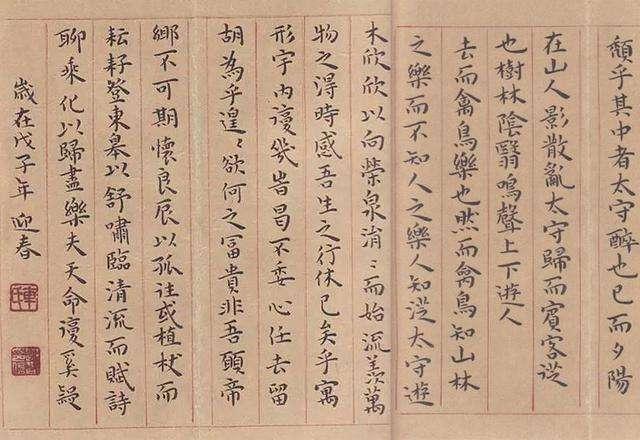 頹乎其中者太守醉也已而夕陽
在山人影散亂太守歸而賓客從
也樹林陰翳鳴聲上下遊人
去而禽鳥樂也然而禽鳥知山林
之樂而不知人之樂人知從太守遊
木欣欣以向榮泉涓〻而始流羨萬
物之得時感吾生之行休已矣乎寓
形宇內復幾時曷不委心任去留
胡為乎遑〻欲何之富貴非吾願帝
鄉不可期懷良辰以孤往或植杖而
耘耔登東皋以舒嘯臨清流而賦詩
聊乘化以歸盡樂夫天命復奚疑
歲在戊子年迎春